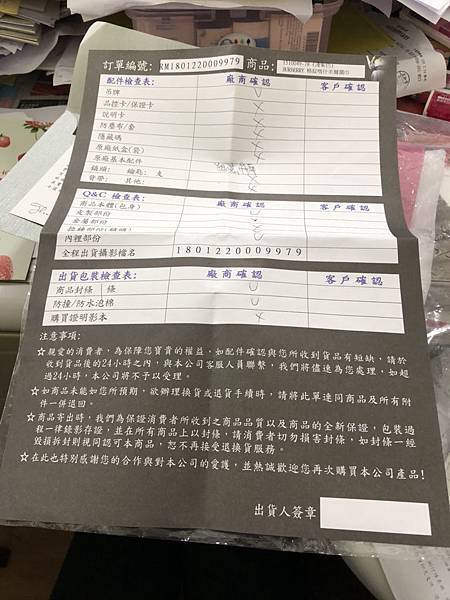 訂單編號: RM1801220009979 商品:
配件檢查表: 廠商確認 客戶確認
吊牌
品控卡/保證卡
說明卡
防塵布/套
隱藏碼
原廠紙盒(袋)
原廠基本配件
鎖頭: 鑰匙: 支
背帶: 其他:
Q&C 檢查表: 廠商確認 客戶確認
商品本體(包身)
定製部份
金屬部份
內裡部份
全程出貨攝影檔名 1801220009979
出貨包裝檢查表: 廠商確認 客戶確認
商品封條 條
防撞/防水泡棉
購買證明影本
注意事項:
☆親愛的消費者,為保障您寶貴的權益,如配件確認與您所收到貨品有短缺,請於
收到貨品後的24小時之內,與本公司客服人員聯繫,我們將儘速為您處理,如超
過24小時,本公司將不予以受理。
☆如商品未能如您所預期,欲辦理換貨或退貨手續時,請將此單連同商品及所有附
件一併退回。
☆商品寄出時,我們為保證消費者所收到之商品品質以及商品的全新保證,包裝過
程一律錄影存證,並在所有商品上以封條,請消費者切勿損害封條,如封條一經
毀損拆封則視同認可本商品,恕不再接受退換貨服務。
☆在此也特別感謝您的合作與對本公司的愛護,並熱誠歡迎您再次購買本公司產品!
出貨人簽章